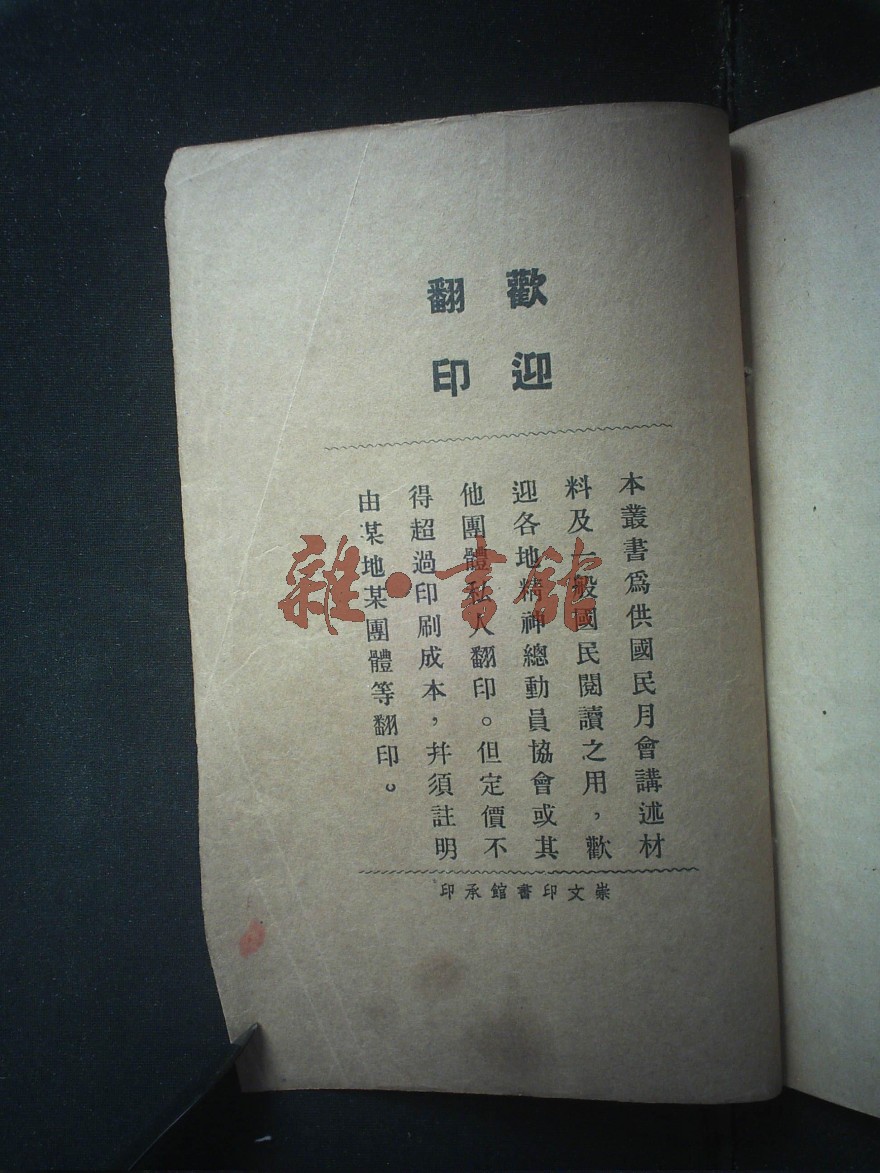 歡迎
翻印
本叢書爲供國民月會講述材
料及一般國民閱讀之用，歡
迎各地精神總動員協會或其
他團體私人翻印。但定價不
得超過印刷成本，幷須註明
由某地某團體等翻印。
崇文印書館承印
雜·書館